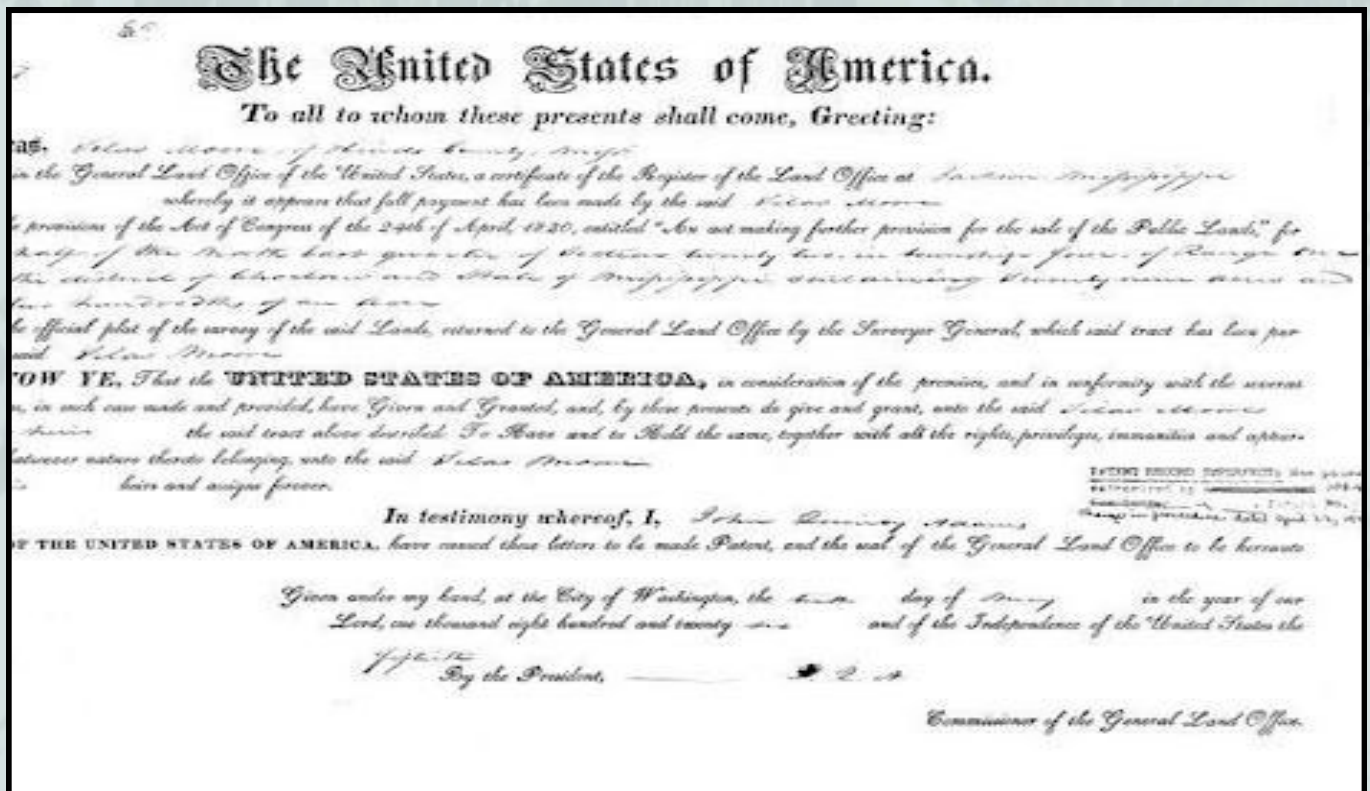 The United States of America.
To all to whom these presents shall come, Greeting:
as. Silas Moore of Hinds County, Miss
in the General Land Office of the United States, a certificate of the Register of the Land Office at Jackson Mississippi
whereby it appears that full payment has been made by the said Silas Moore
provisions of the Act of Congress of the 24th of April, 1820, entitled "An act making further provision for the sale of the Public Lands," for
half of the North East quarter of Section twenty two in township four of Range One
the district of Choctaw and State of Mississippi containing Seventy nine acres and
hundredths of an acre
official plat of the survey of the said Lands, returned to the General Land Office by the Surveyor General, which said tract has been pur
said Silas Moore
OW YE, That the UNITED STATES OF AMERICA, in consideration of the premises, and in conformity with the several
in such case made and provided, have Given and Granted, and, by these presents do give and grant, unto the said Silas Moore
heirs the said tract above described: To Have and to Hold the same, together with all the rights, privileges, immunities and appur-
whatsoever nature thereto belonging, unto the said Silas Moore
heirs and assigns forever.
PATENT RECORD
In testimony whereof, I, John Quincy Adams
OF THE UNITED STATES OF AMERICA, have caused these letters to be made Patent, and the seal of the General Land Office to be hereunto
Given under my hand, at the City of Washington, the day of May in the year of our
Lord, one thousand eight hundred and twenty and of the Independence of the United States the
fiftieth
By the President, J Q A
Commissioner of the General Land Office.